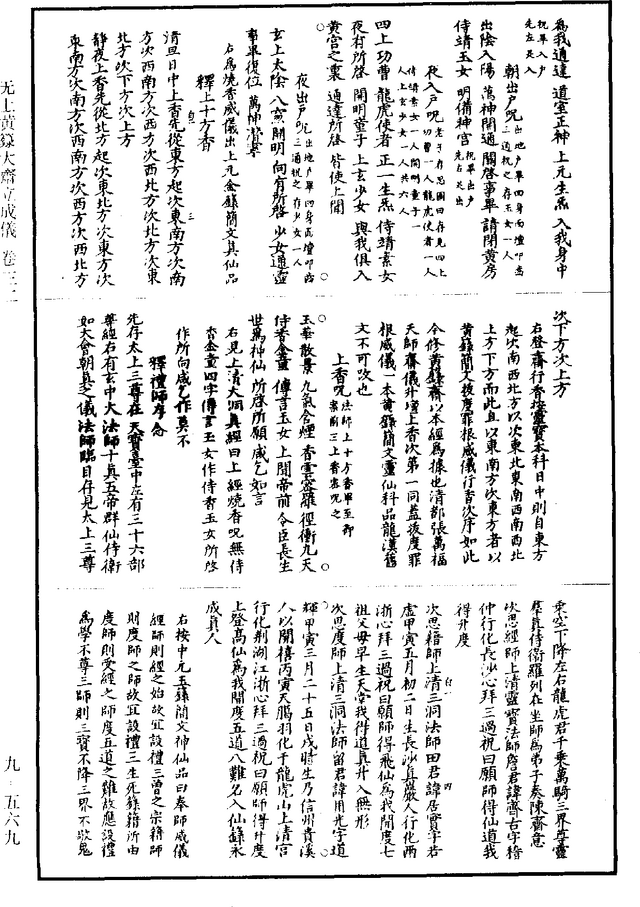 為我通達道室正神上元生炁入我身中
祝畢入戶
先左足入
朝出戶呪出地戶畢四身向壇叩齒
三過祝之存玉女一人
出陰入陽萬神開通關啓事畢請閉黃房
侍靖玉女明備神宮祝畢出戶
先右足出
夜入戶呪老子存思圖曰存見四上
功曹一人龍虎使者一人
侍靖素女一人開明童子一
人上玄少女一人共六人
四上功曹龍虎使者正一生炁侍靖素女
夜有所啓開明童子上玄少女與我俱入
黃宮之裏通達所啓皆使上聞
夜出戶呪出地戶畢四身向壇叩齒
三過祝之存少女一人
玄上太陰八窻開明向有所啓少女通靈
事畢復位萬神潛寧
右為燒香威儀出上元金籙簡文真仙品
釋上十方香
清旦日中上香先從東方起次東南方次南
方次西南方次西方次西北方次北方次東
北方次下方次上方
靜夜上香先從北方起次東北方次東方次
東南方次南方次西南方次西方次西北方
次下方次上方
右登齋行香按靈寶本科日中則自東方
起次南西北方以次東北東南西南西北
上方下方而此直以東南方次東方者以
黃籙簡文拔度罪根威儀行香次序如此
今修黃籙齋以本經為據也清都張萬福
天師齋儀升壇上香次第一同蓋拔度罪
根威儀本黃籙簡文靈仙科品龍漢舊
文不可改也
上香呪法師上十方香畢至都
案前三上香密呪之
玉華散景九氣含煙香雲密羅徑衝九天
侍香金童傳言玉女上聞帝前令臣長生
世為神仙所啓所願咸乞如言
右見上清大洞真經曰上經燒香呪無侍
香金童四字傳言玉女作侍香玉女所啓
作所向咸乞作莫不
釋禮師存念
先存太上三尊在天寶臺中左有三十六部
尊經右有玄中大法師十真五帝群仙侍衛
如大會朝真之儀法師臨目存見太上三尊
乘空下降左右龍虎君千乘萬騎三界尊靈
羣真侍衛羅列在坐師為弟子奏陳齋意
次思經師上清靈寶法師詹君諱齊古字稽
仲行化長沙心拜三過祝曰願師得仙道我
得升度
次思籍師上清三洞法師田君諱居實字若
虛甲寅五月初二日生長沙真巖人行化兩
浙心拜三過祝曰願師得飛仙為我開度七
祖父母早生天堂我得道真升入無形
次思度師上清三洞法師留君諱用光字道
輝甲寅三月二十五日戌時生乃信州貴溪
人以開禧丙寅天臘羽化于龍虎山上清宮
行化荆湖江浙心拜三過祝曰願師得升度
上登高仙為我開度五道八難名入仙籙永
成真人
右按中元玉籙簡文神仙品曰奉師威儀
經師則經之始故宜設禮三曾之宗籍師
則度師之師故宜設禮三生死錄籍所由
度師則受經之師度五道之難故應設禮
為學不尊三師則三寶不降三界不敬鬼
无上黃籙大齋立成儀 卷三二
九 - 五六九